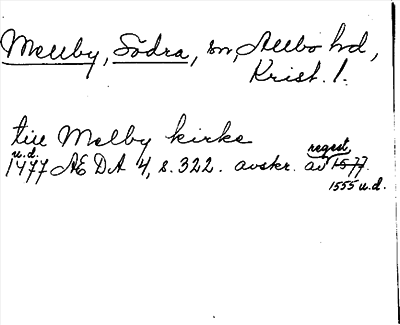 Mellby, Södra, sn, Albo hd,
Krist. l.
till Melby kirke
u.d.
1477 ÆDA 4, s. 322. avskr. av regest 1577.
1555 u.d.